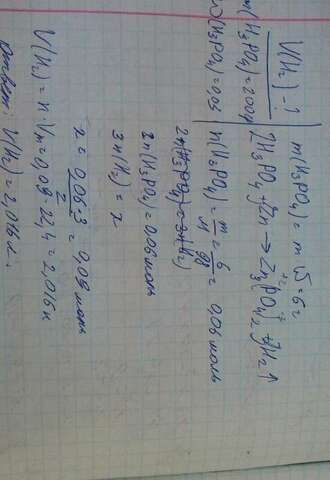 V(H₂) - ?
m(H₃PO₄) = 200г
ω(H₃PO₄) = 0,03
m(H₃PO₄) = m · ω = 6г
2H₃PO₄ + Zn → Zn₃(PO₄)₂ + 3H₂↑
n(H₃PO₄) = m/M = 6/98 = 0,06 моль
2n(H₃PO₄) = 3n(H₂)
2n(H₃PO₄) = 0,06 моль
3n(H₂) = x
x = 0,06·3/2 = 0,09 моль
V(H₂) = n · Vm = 0,09 · 22,4 = 2,016 л
Ответ: V(H₂) = 2,016 л.